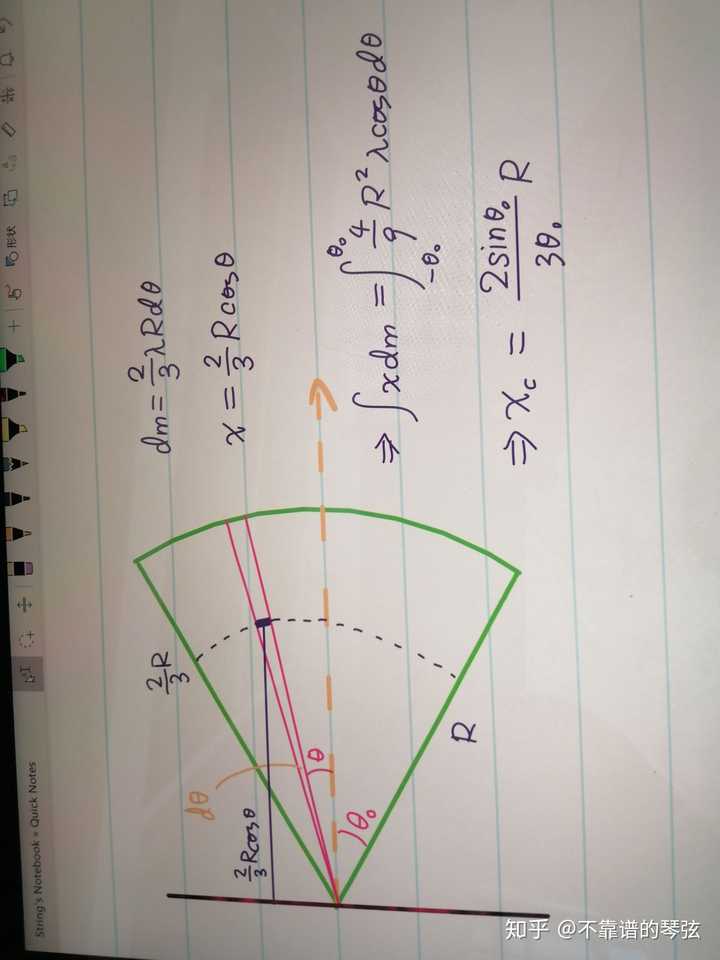 String's Notebook » Quick Notes
形状
dm = 2/3 λRdθ
x = 2/3 Rcosθ
⇒ ∫xdm = ∫_{-θ₀}^{θ₀} 4/9 R² λcosθdθ
⇒ x_c = 2sinθ₀/3θ₀ R
2/3 R
dθ
2/3 Rcosθ
θ
θ₀
R
知乎 @不靠谱的琴弦